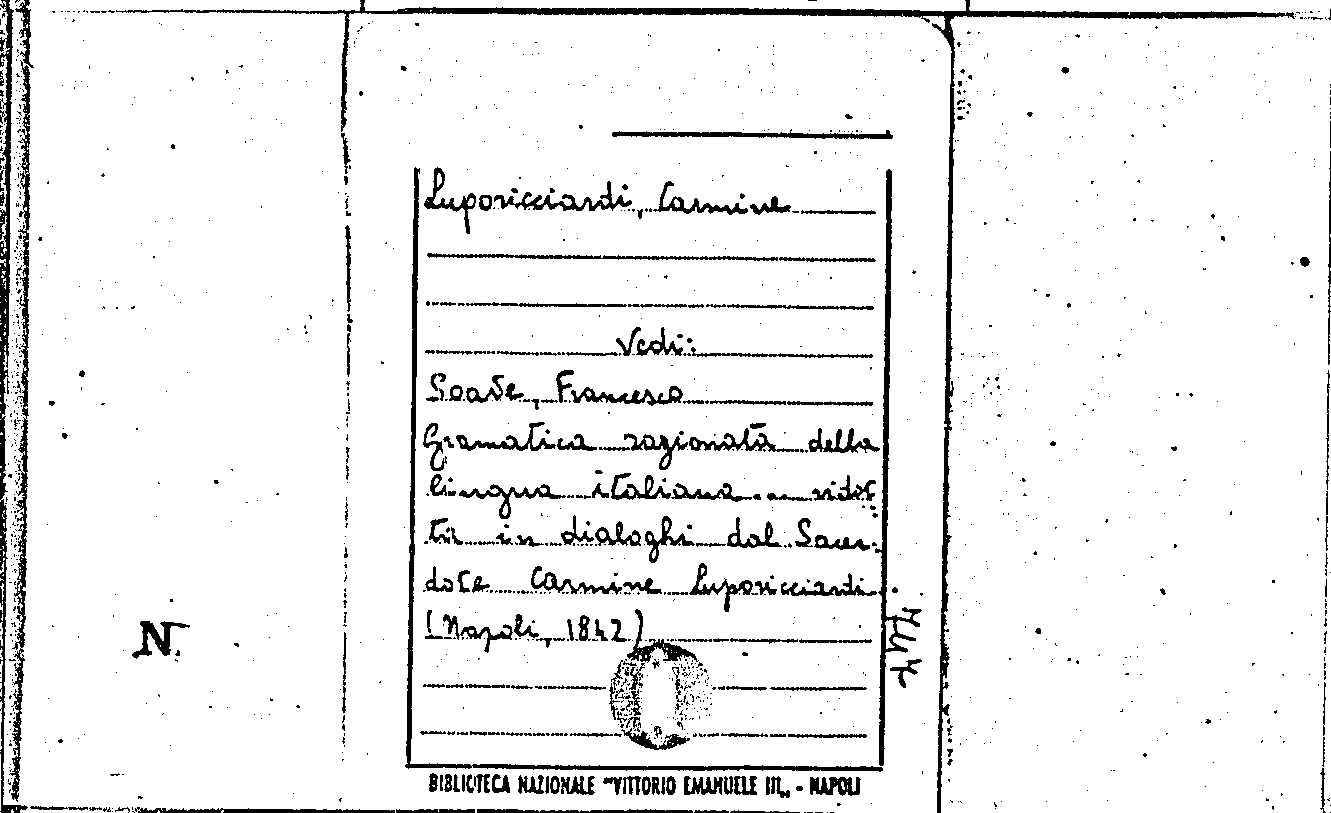 Luporicciardi, Carmine
Vedi:
Soave, Francesco
Gramatica ragionata della
lingua italiana... ridot-
ta in dialoghi dal Sacer-
dote Carmine Luporicciardi
(Napoli, 1842)
N.
BIBLIOTECA NAZIONALE "VITTORIO EMANUELE III„ - NAPOLI